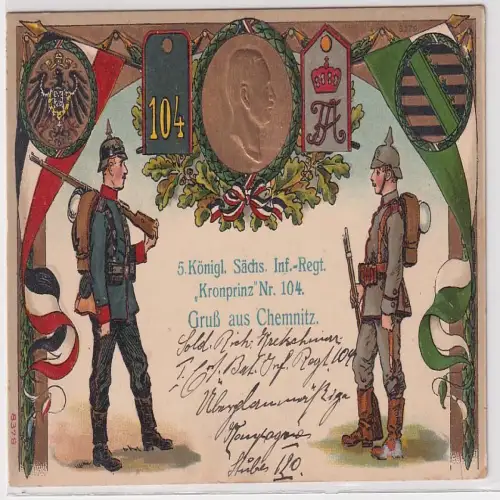 104
FA
5. Königl. Sächs. Inf.-Regt.
„Kronprinz" Nr. 104.
Gruß aus Chemnitz.
Sold. Rich.
Inf. Regt 104
Überplanmäßige
Kompagnie
Stube 120